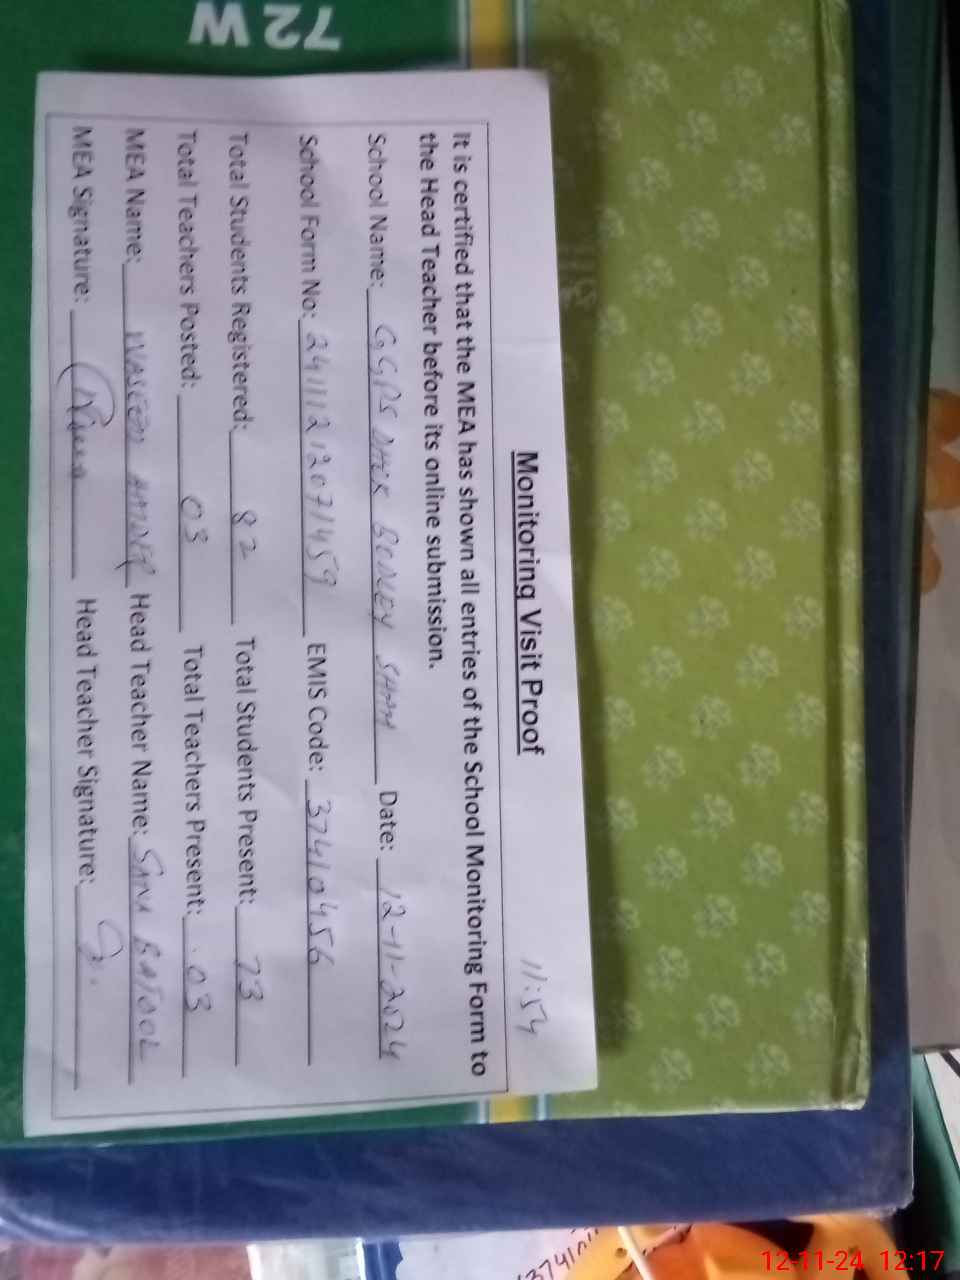 72 W
Monitoring Visit Proof
11:54
It is certified that the MEA has shown all entries of the School Monitoring Form to
the Head Teacher before its online submission.
School Name: GGPS SAMM Date: 12-11-2024
School Form No: 24111212071459 EMIS Code: 37410456
Total Students Registered: 82 Total Students Present: 73
Total Teachers Posted: 03 Total Teachers Present: 03
MEA Name: WASEEM HAIDER Head Teacher Name: SANA BATOOL
MEA Signature: Head Teacher Signature:
12-11-24 12:17